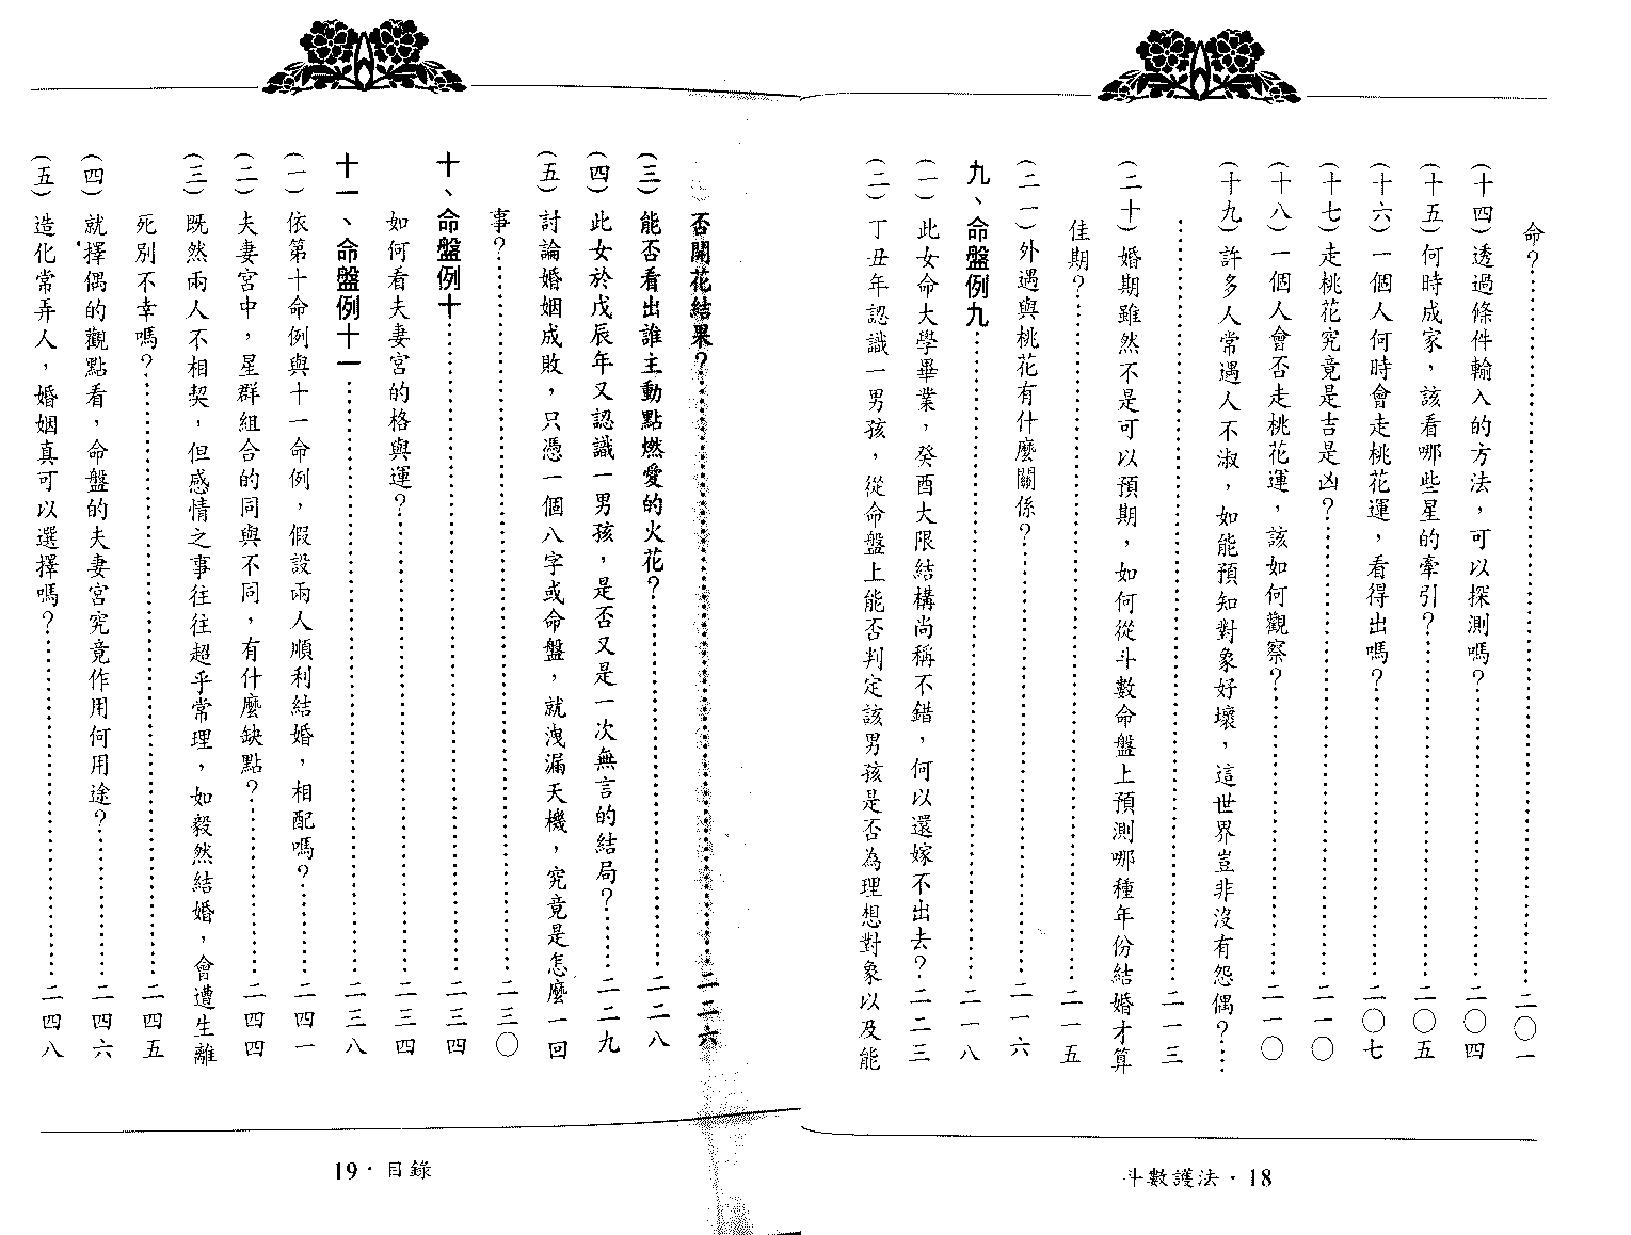 命？……二〇一
（十四）透過條件輸入的方法，可以探測嗎？……二〇四
（十五）何時成家，該看哪些星的牽引？……二〇五
（十六）一個人何時會走桃花運，看得出嗎？……二〇七
（十七）走桃花究竟是吉是凶？……二一〇
（十八）一個人會否走桃花運，該如何觀察？……二一〇
（十九）許多人常遇人不淑，如能預知對象好壞，這世界豈非沒有怨偶？…
……二一三
（二十）婚期雖然不是可以預期，如何從斗數命盤上預測哪種年份結婚才算
佳期？……二一五
（二一）外遇與桃花有什麼關係？……二一六
九、命盤例九……二一八
（一）此女命大學畢業，癸酉大限結構尚稱不錯，何以還嫁不出去？二二三
（二）丁丑年認識一男孩，從命盤上能否判定該男孩是否為理想對象以及能
斗數護法・18
否開花結果？……二二六
（三）能否看出誰主動點燃愛的火花？……二二八
（四）此女於戊辰年又認識一男孩，是否又是一次無言的結局？……二二九
（五）討論婚姻成敗，只憑一個八字或命盤，就洩漏天機，究竟是怎麼一回
事？……二三〇
十、命盤例十……二三四
如何看夫妻宮的格與運？……二三四
十一、命盤例十一……二三八
（一）依第十命例與十一命例，假設兩人順利結婚，相配嗎？……二四一
（二）夫妻宮中，星群組合的同與不同，有什麼缺點？……二四四
（三）既然兩人不相契，但感情之事往往超乎常理，如毅然結婚，會遭生離
死別不幸嗎？……二四五
（四）就擇偶的觀點看，命盤的夫妻宮究竟作用何用途？……二四六
（五）造化常弄人，婚姻真可以選擇嗎？……二四八
19・目錄